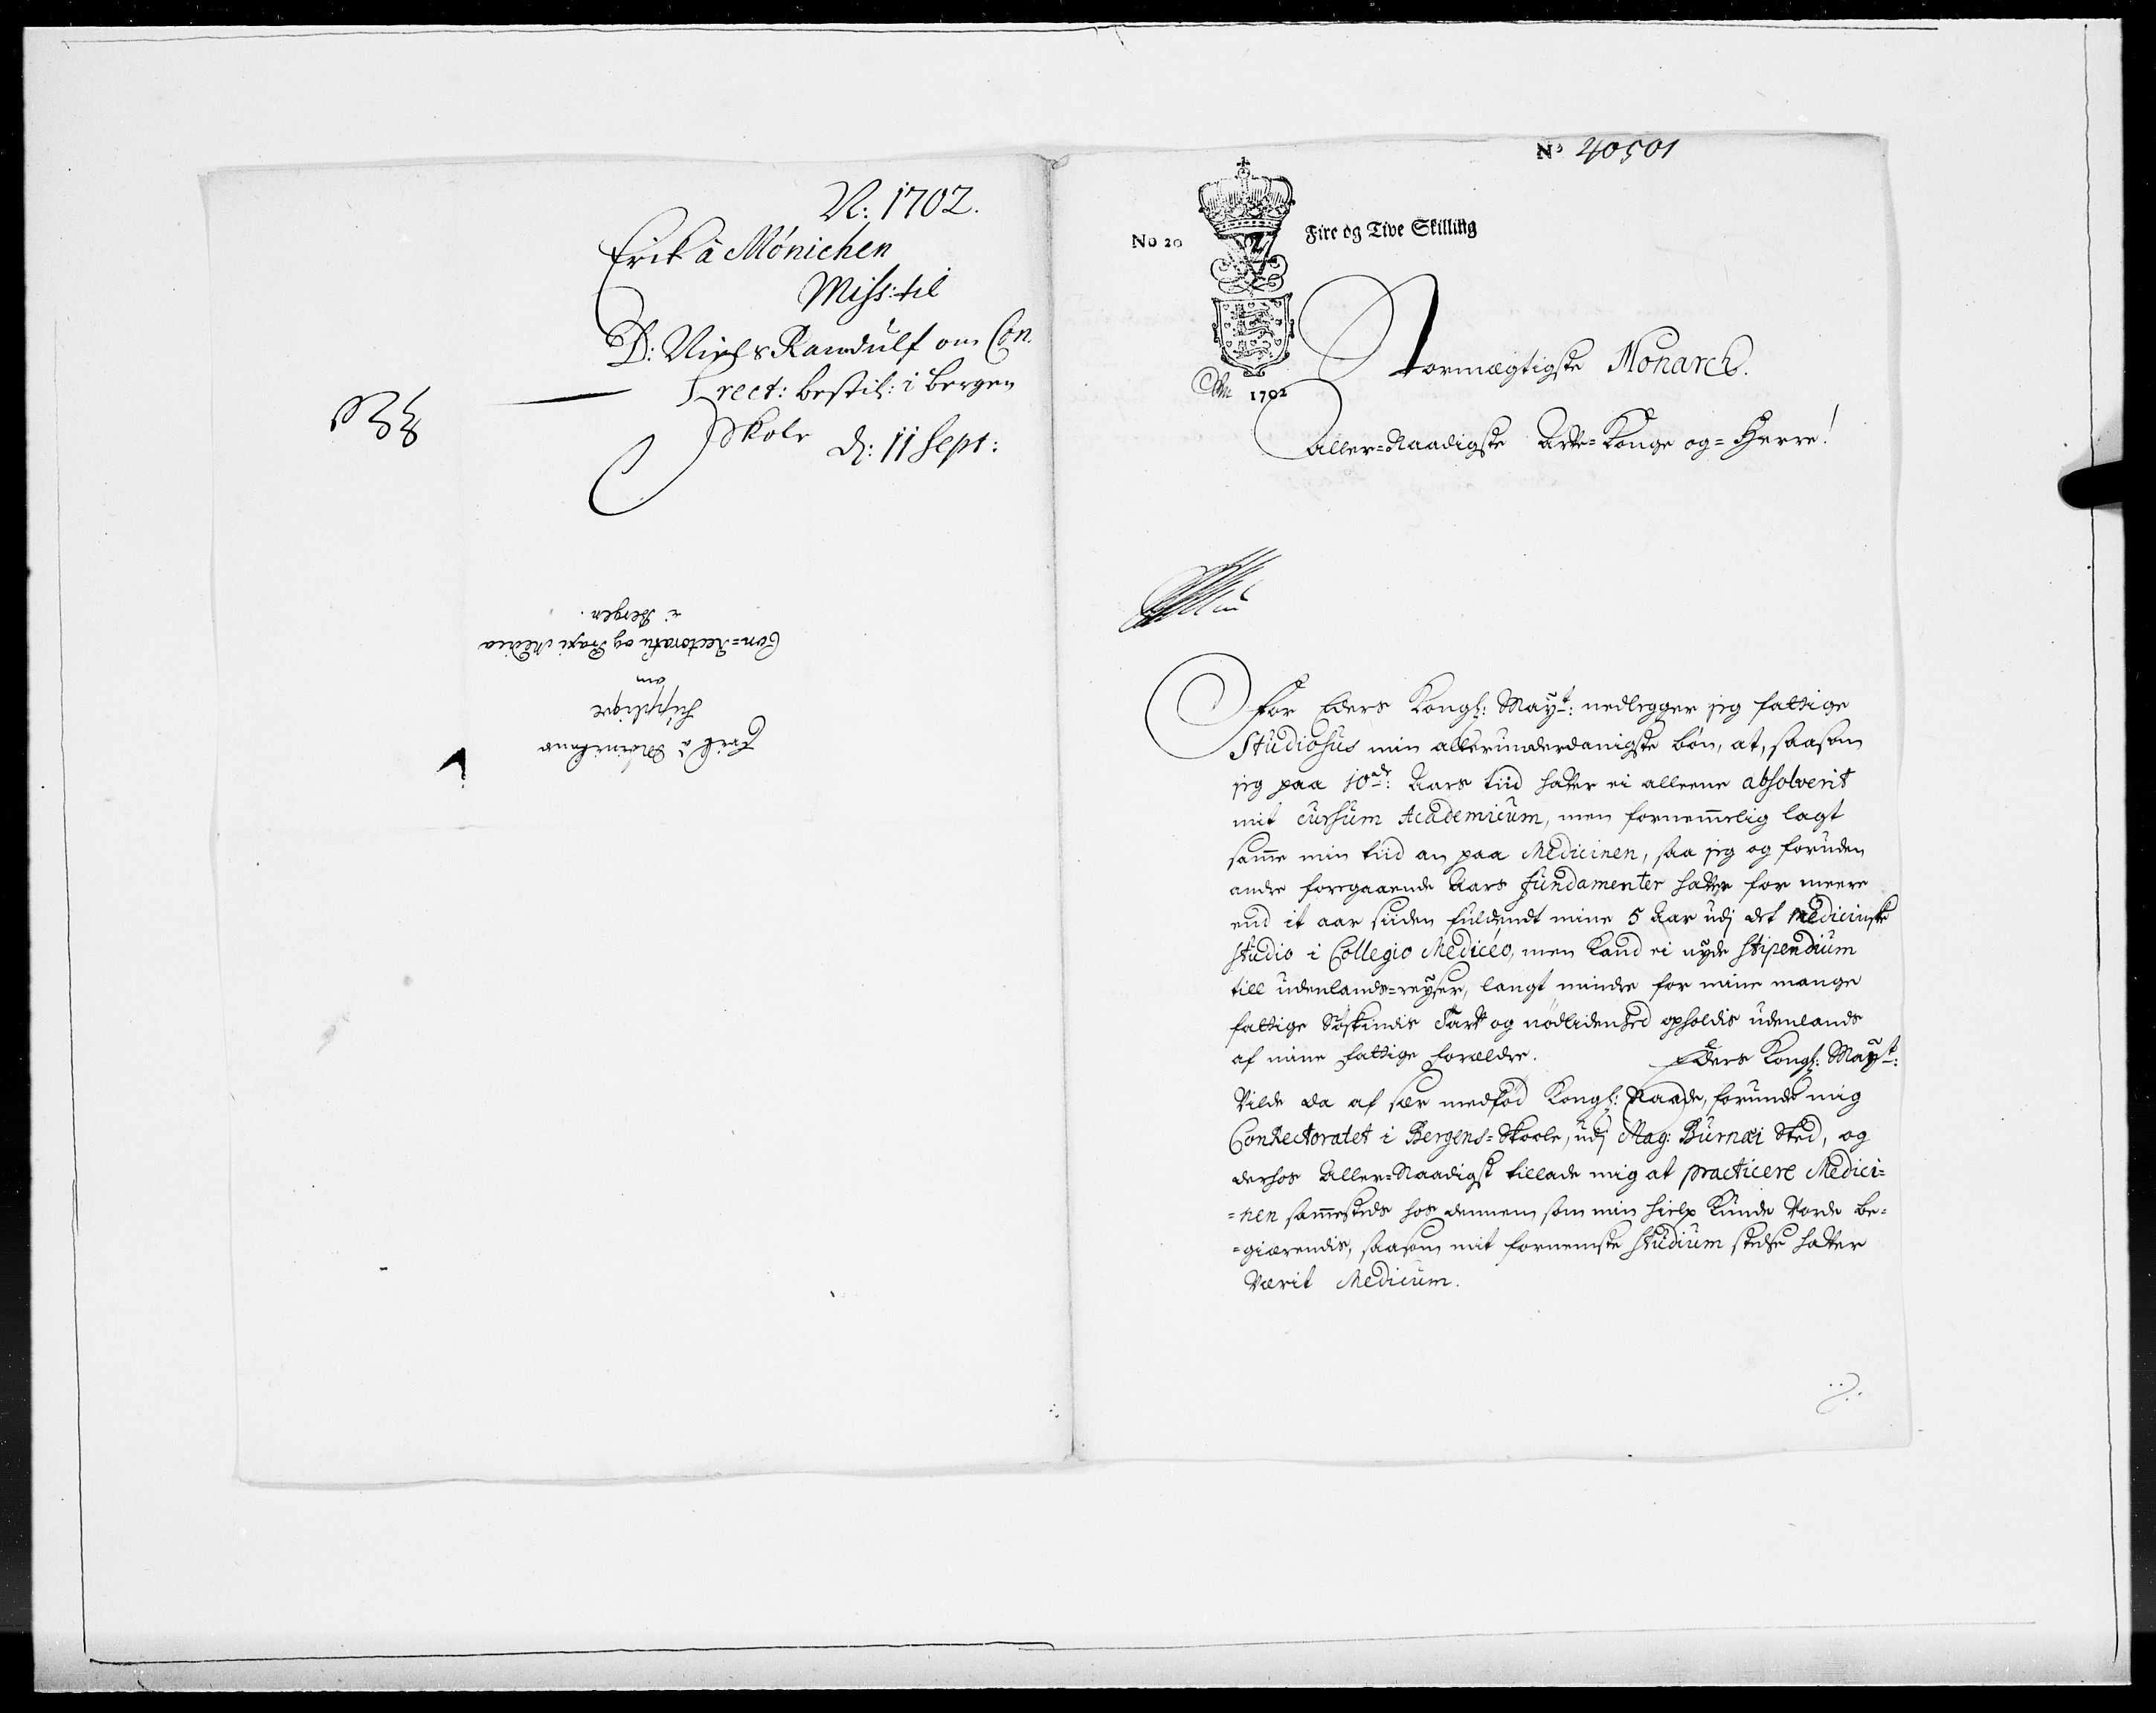 N: 1702.
Erik â Mónichen
Miss: til
D: Niels Randulf om Con
rect: bestil: i Bergen
Skole d: 11 Sept:
Erik â Mónichens
Supplique
om
Con=Rectoratu og Praxi Medica
i Bergen.
No 40501
No 20
Fire og Tive Skilling
1702
Stormægtigste Monarch.
Aller=Naadigste Arfve=Konge og=Herre!
For Eders Kongl: Mayt: nedlegger jeg fattige
Studiosus min allerunderdanigste bøn, at, saasom
jeg paa 10de: Aars tiid hafver ei alleene absolverit
mit cursum Academicum, men fornemmelig lagt
samme min tiid an paa Medicinen, saa jeg og foruden
andre foregaaende Aars fundamenter hafver for meere
end it aar siiden fuldendt mine 5 Aar udj det Medicinske
studio i Collegio Mediceo, men kand ei nyde stipendium
till udenlands=reyser, langt mindre for mine mange
fattige Søskindis Tarf og nødlidenhed opholdis udenlands
af mine fattige forældre. Eders Kongl: Mayt:
Vilde da af sær medfød Kongl: Naade, forunde mig
ConRectoratet i Bergens=Skoole, udj Mag: Burnæi Sted, og
derhos Aller=Naadigst tillade mig at practicere Medici=
=nen sammesteds hos dennem, som min hielp kunde vorde be=
=giærendis, saasom mit fornemste studium stedse hafver
værit Medicum.